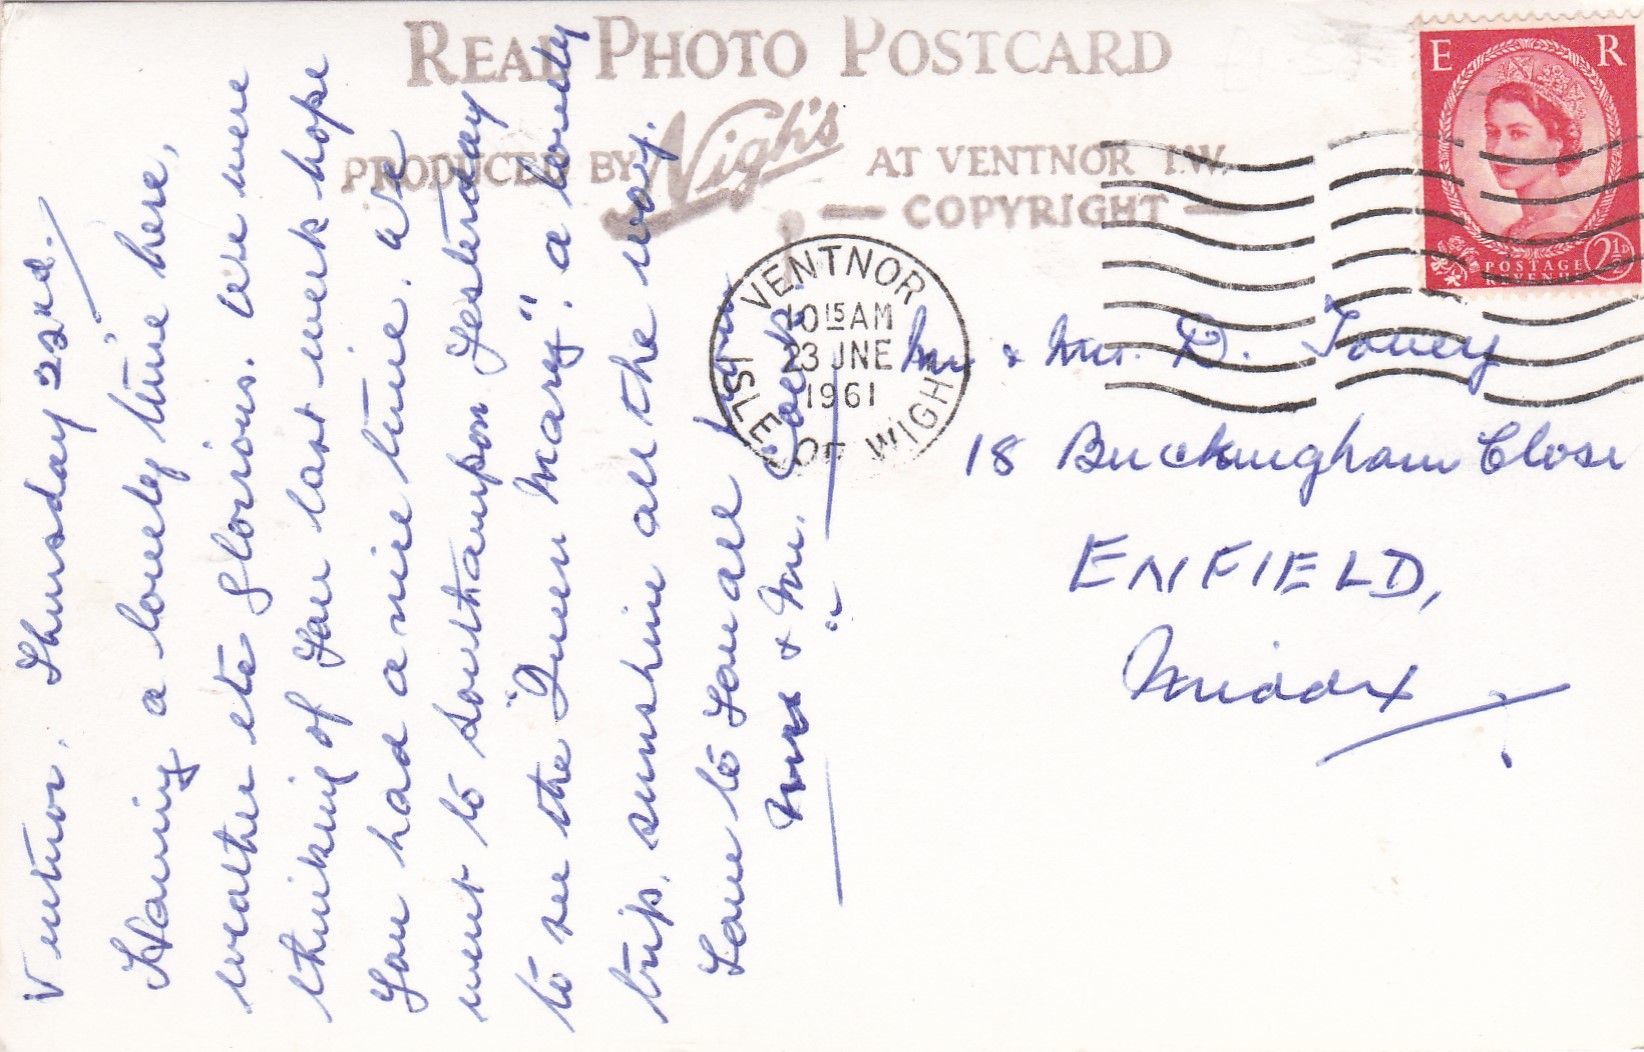 REAL PHOTO POSTCARD
PRODUCED BY Nigh's AT VENTNOR I.W.
— COPYRIGHT —
E R
POSTAGE 2½D
REVENUE
VENTNOR
10 15 AM
23 JNE
1961
ISLE OF WIGHT
Ventnor. Thursday 22nd.
Having a lovely time here,
weather etc glorious. We were
thinking of you last week hope
you had a nice time. We
went to Southampon Yesterday
to see the "Queen Mary", a lovely
trip, sunshine all the way.
Love to you all from
Mrs & Mr.
Mr & Mrs. D. Tovey
18 Buckingham Close
ENFIELD,
Middx